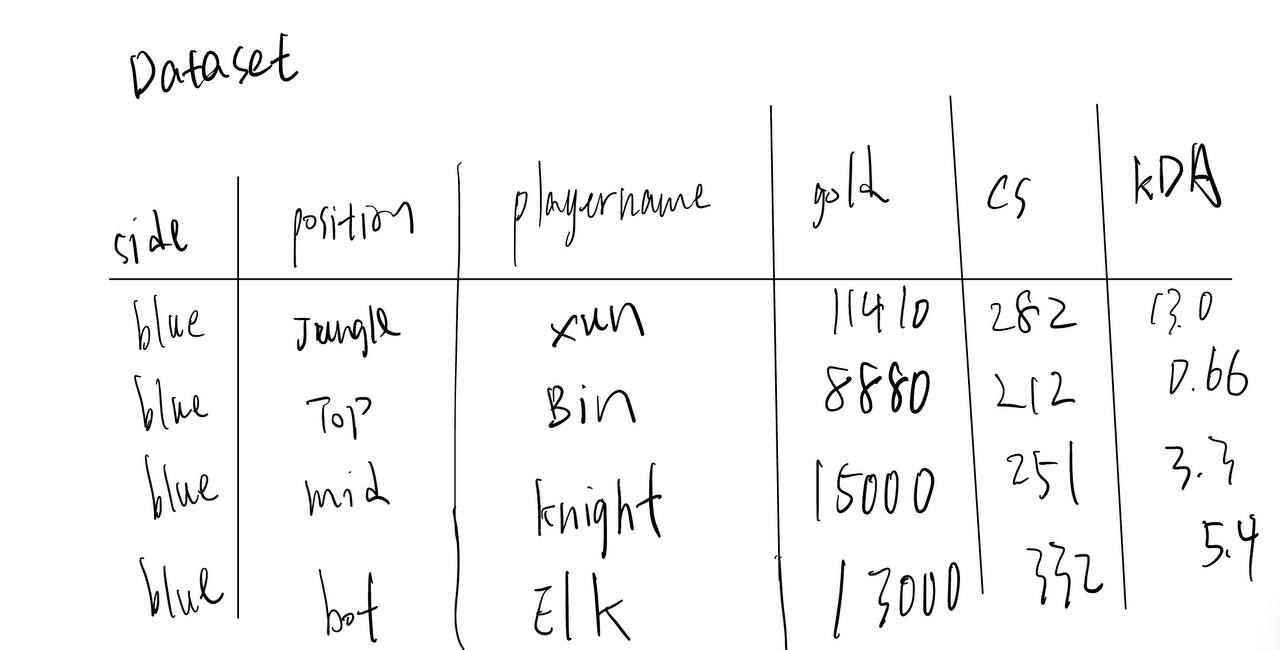 Dataset
side position playername gold cs KDA
blue Jungle xun 11410 282 13.0
blue Top Bin 8880 212 0.66
blue mid knight 15000 251 3.3
blue bot Elk 13000 332 5.4